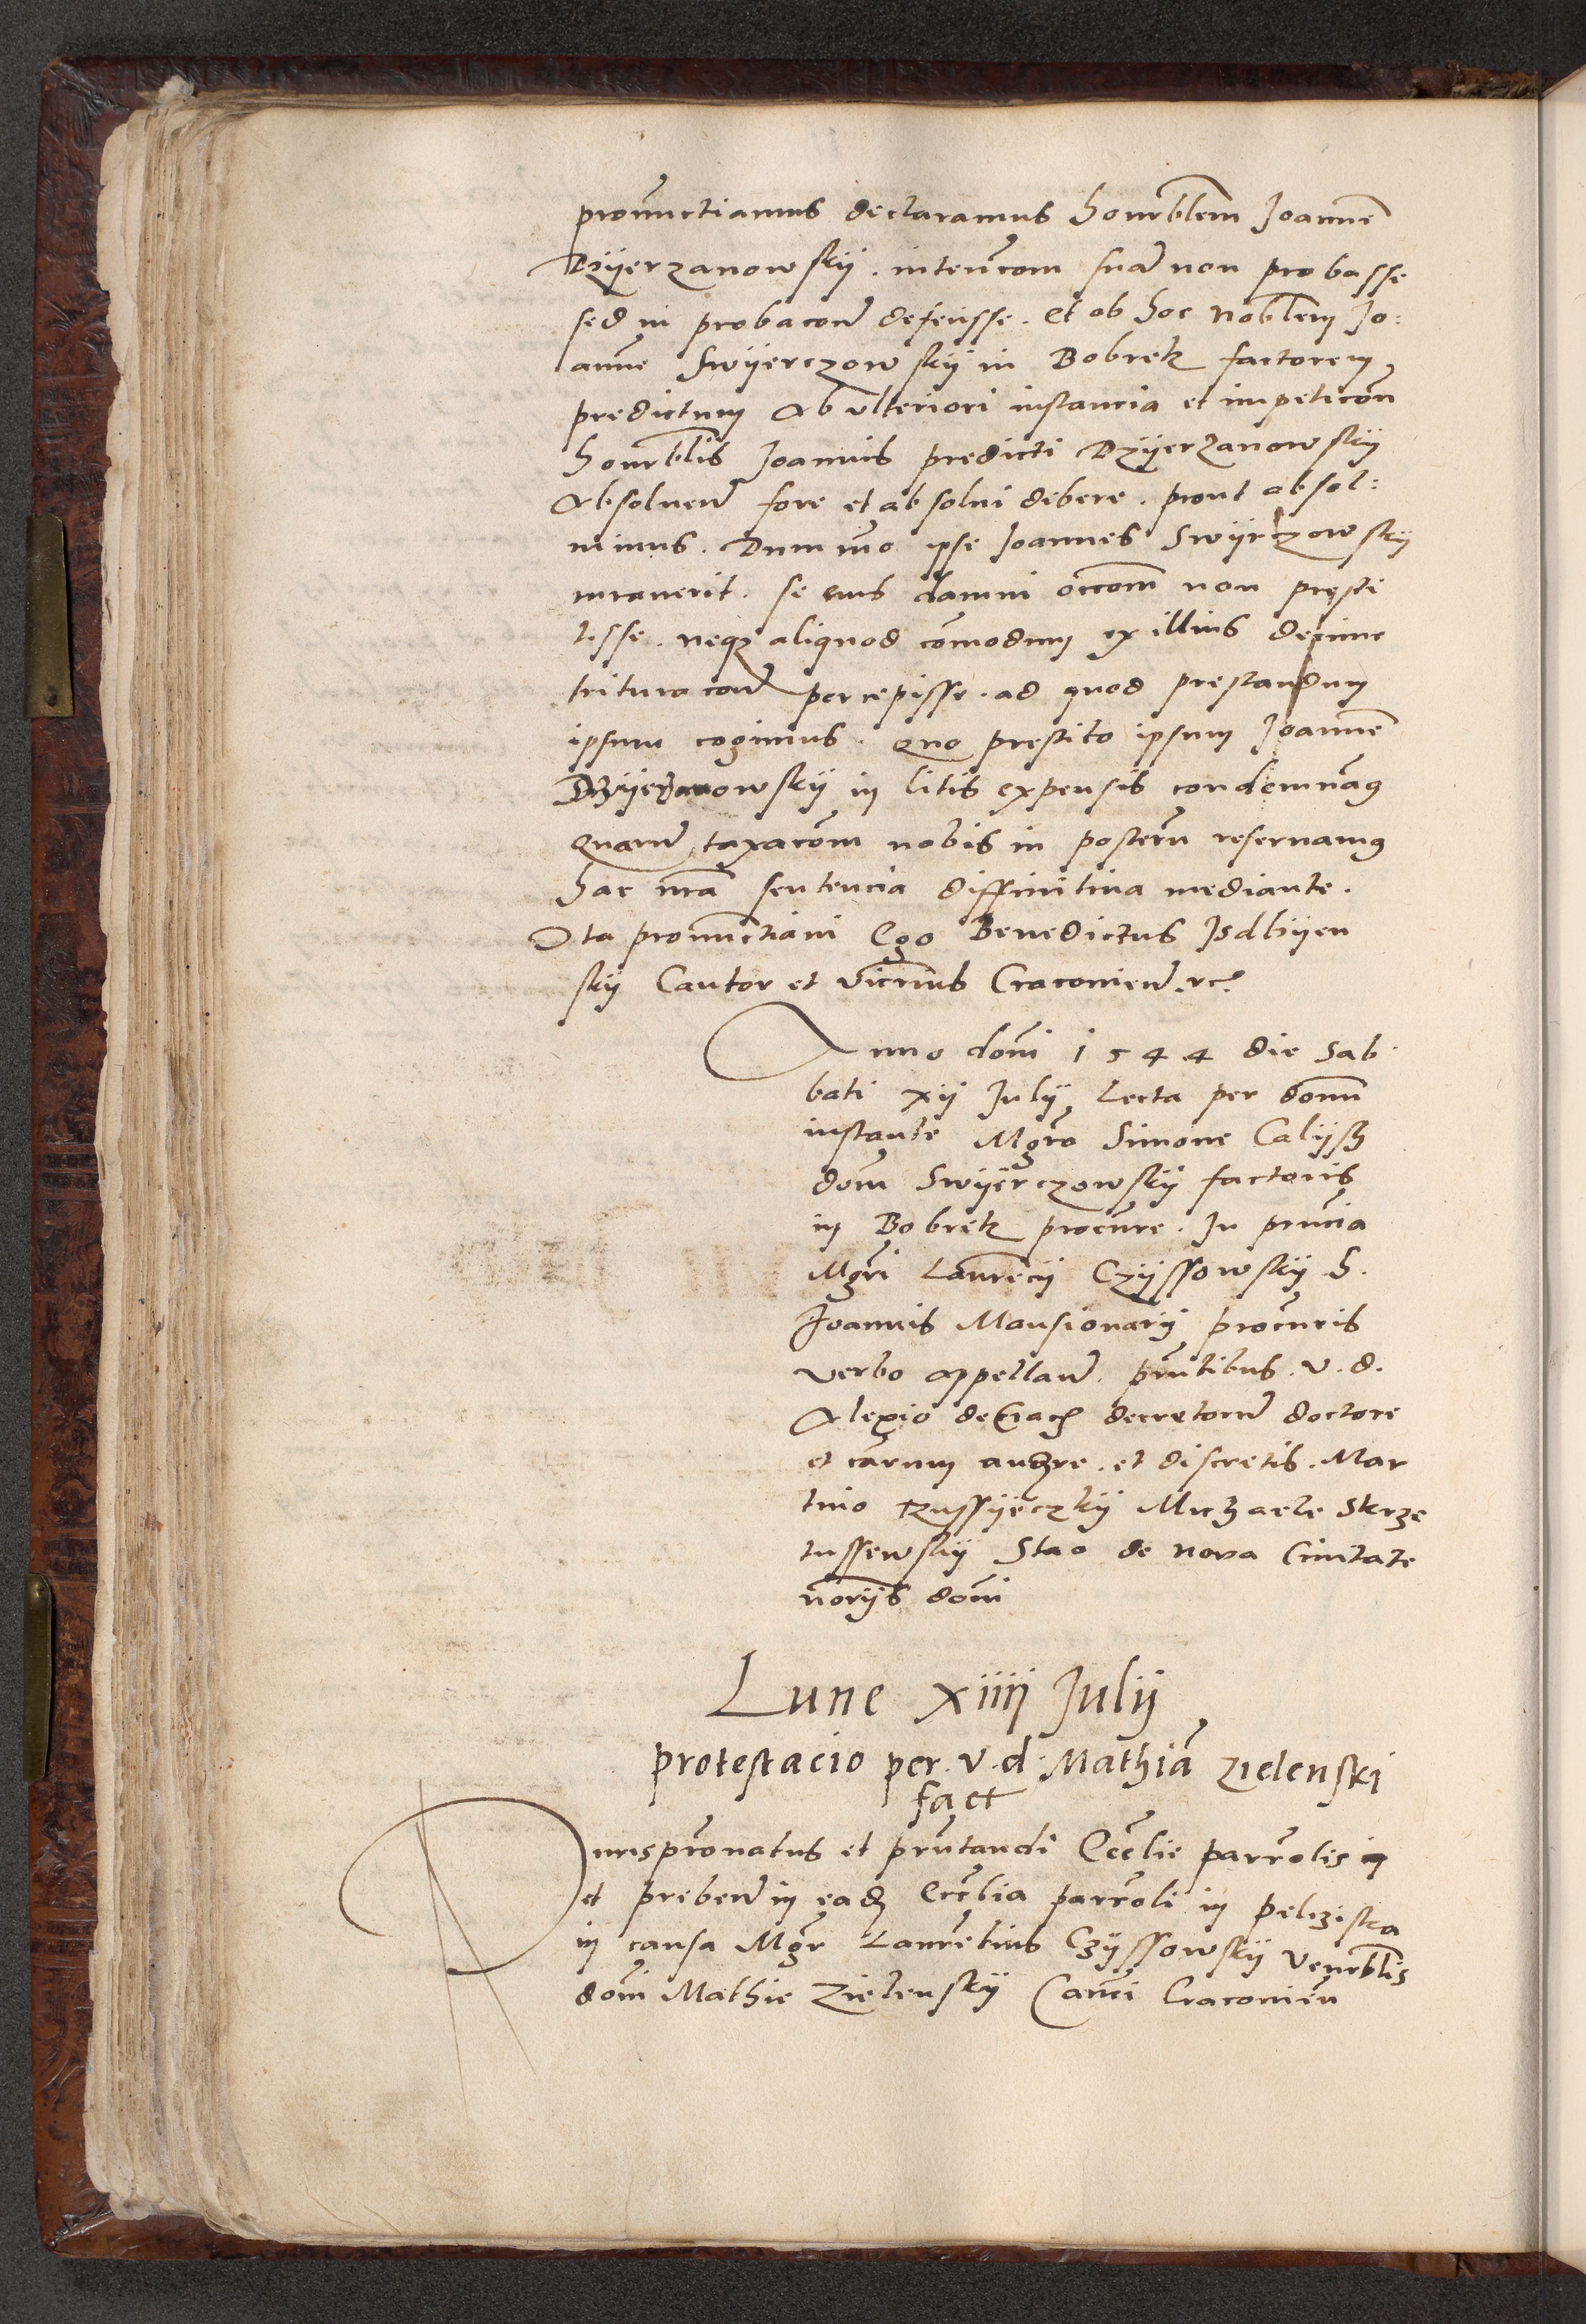 pronunctiamus declaramus honorblem Joannẽ
Dzyerzanowsky . intencõm suã non probasse
sed in probacone defecisse . et ob hoc noblem Jo:
annẽ Swyerczowsky in Bobrek factorem
predictum Ab ulteriori instancia et impeticõn
honorblis Joannis predicti Dzyerzanowsky
Absoluen fore et absolui debere . prout absol:
uimus . Dummõ ipse Joannes Swyrczowsky
iuraverit . se eius damni occõem non presti
tisse . neqz aliquod cõmodum ex illius decime
trituracone percepisse . ad quod prestandum
ipsum cogimus . Quo prestito ipsum Joannẽ
Dzyerzanowsky in litis expensis condemnãg
Quarum taxacõm nobis in posterũ reservamg
hac nrã sentencia diffinitiva mediante .
Ita pronunctiavi Ego Benedictus Jsdbyen
sky Cantor et vicrius Cracovien . rc.
Anno domi 1544 die Sab
bati xij July Lecta per domũ
instante Mgro Simone Calysz
dom Swyerczowsky factoris
in Bobrek procũre . In pnĩcia
Mgri Laurẽcij Czyssowsky h.
Joannis Mansionarij procũris
verbo appellan . pntibus . v . d .
Alexio de Crac decretorum doctore
et cãrum audre . et discretis . Mar
tino Russyeczky Michaele Skrze
tussewsky Stao de nova Civitate
norijs domi
Lune xiiij Julij
protestacio per . v . d . Mathiã Zielenski
fact
Jurisprõnatus et pñtandi Ecclie parrolis in
et preben in eadẽ Ecclia parroli in peliziska
in causa Mgr Laurẽtius Czyssowsky Venrblis
domi Mathie Zielensky Canci Cracovien